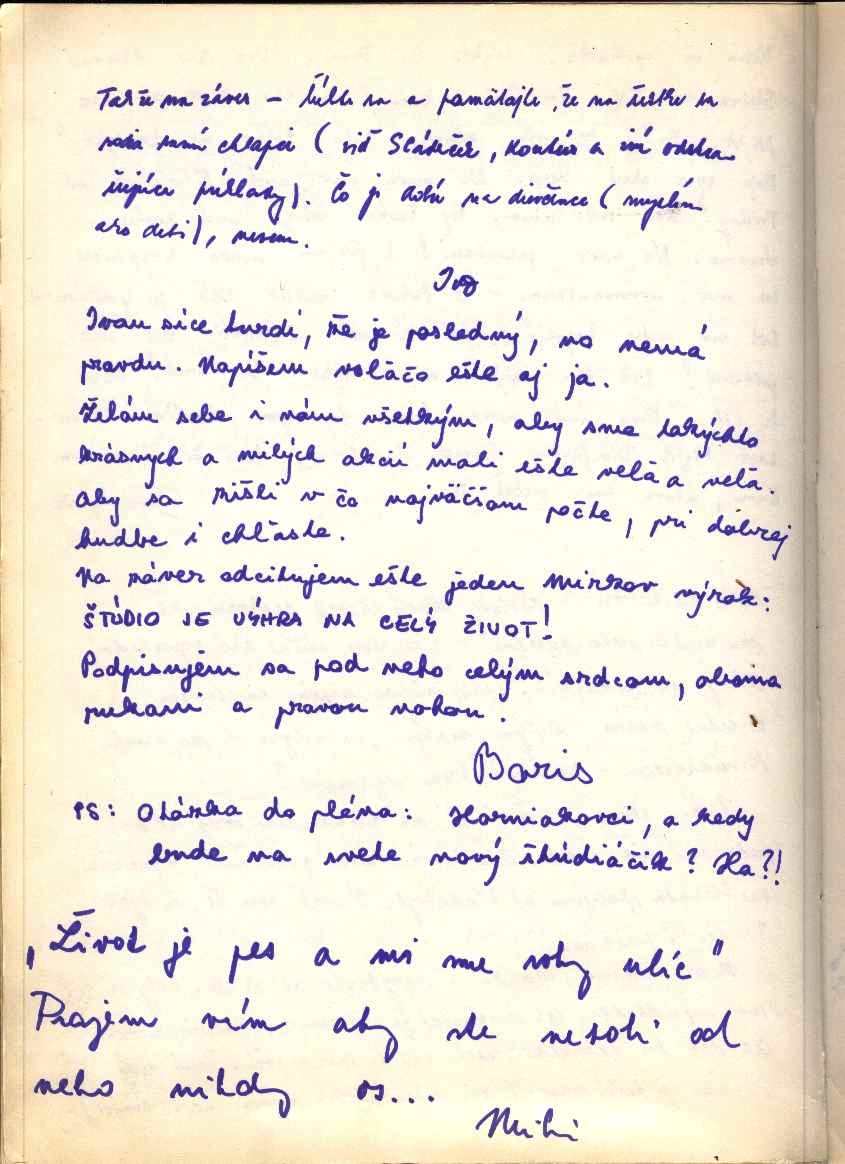 Takže na záver – ľúbte sa a pamätajte, že na úteku sa
rodia samí chlapci (viď Slávkuš, Kontúr a iné odstra-
šujúce príklady). Čo je dobré na dievčence (myslím
ako deti), neviem.
Ivo
Ivan síce tvrdí, že je posledný, no nemá
pravdu. Napíšem voľačo ešte aj ja.
Želám sebe i nám všetkým, aby sme takýchto
krásnych a milých akcií mali ešte veľa a veľa.
Aby sa zišli v čo najväčšom počte, pri dobrej
hudbe i chľaste.
Na záver odcitujem ešte jeden Mirkov výrok:
ŠTÚDIO JE VÝHRA NA CELÝ ŽIVOT!
Podpisujem sa pod neho celým srdcom, oboma
rukami a pravou nohou.
Boris
PS: Otázka do pléna: Harniakovci, a kedy
bude na svete nový štúdiáčik? Ha?!
„Život je pes a mi sme rohy ulíc"
Prajem vám aby ste neboli od
neho nikdy os...
Miki